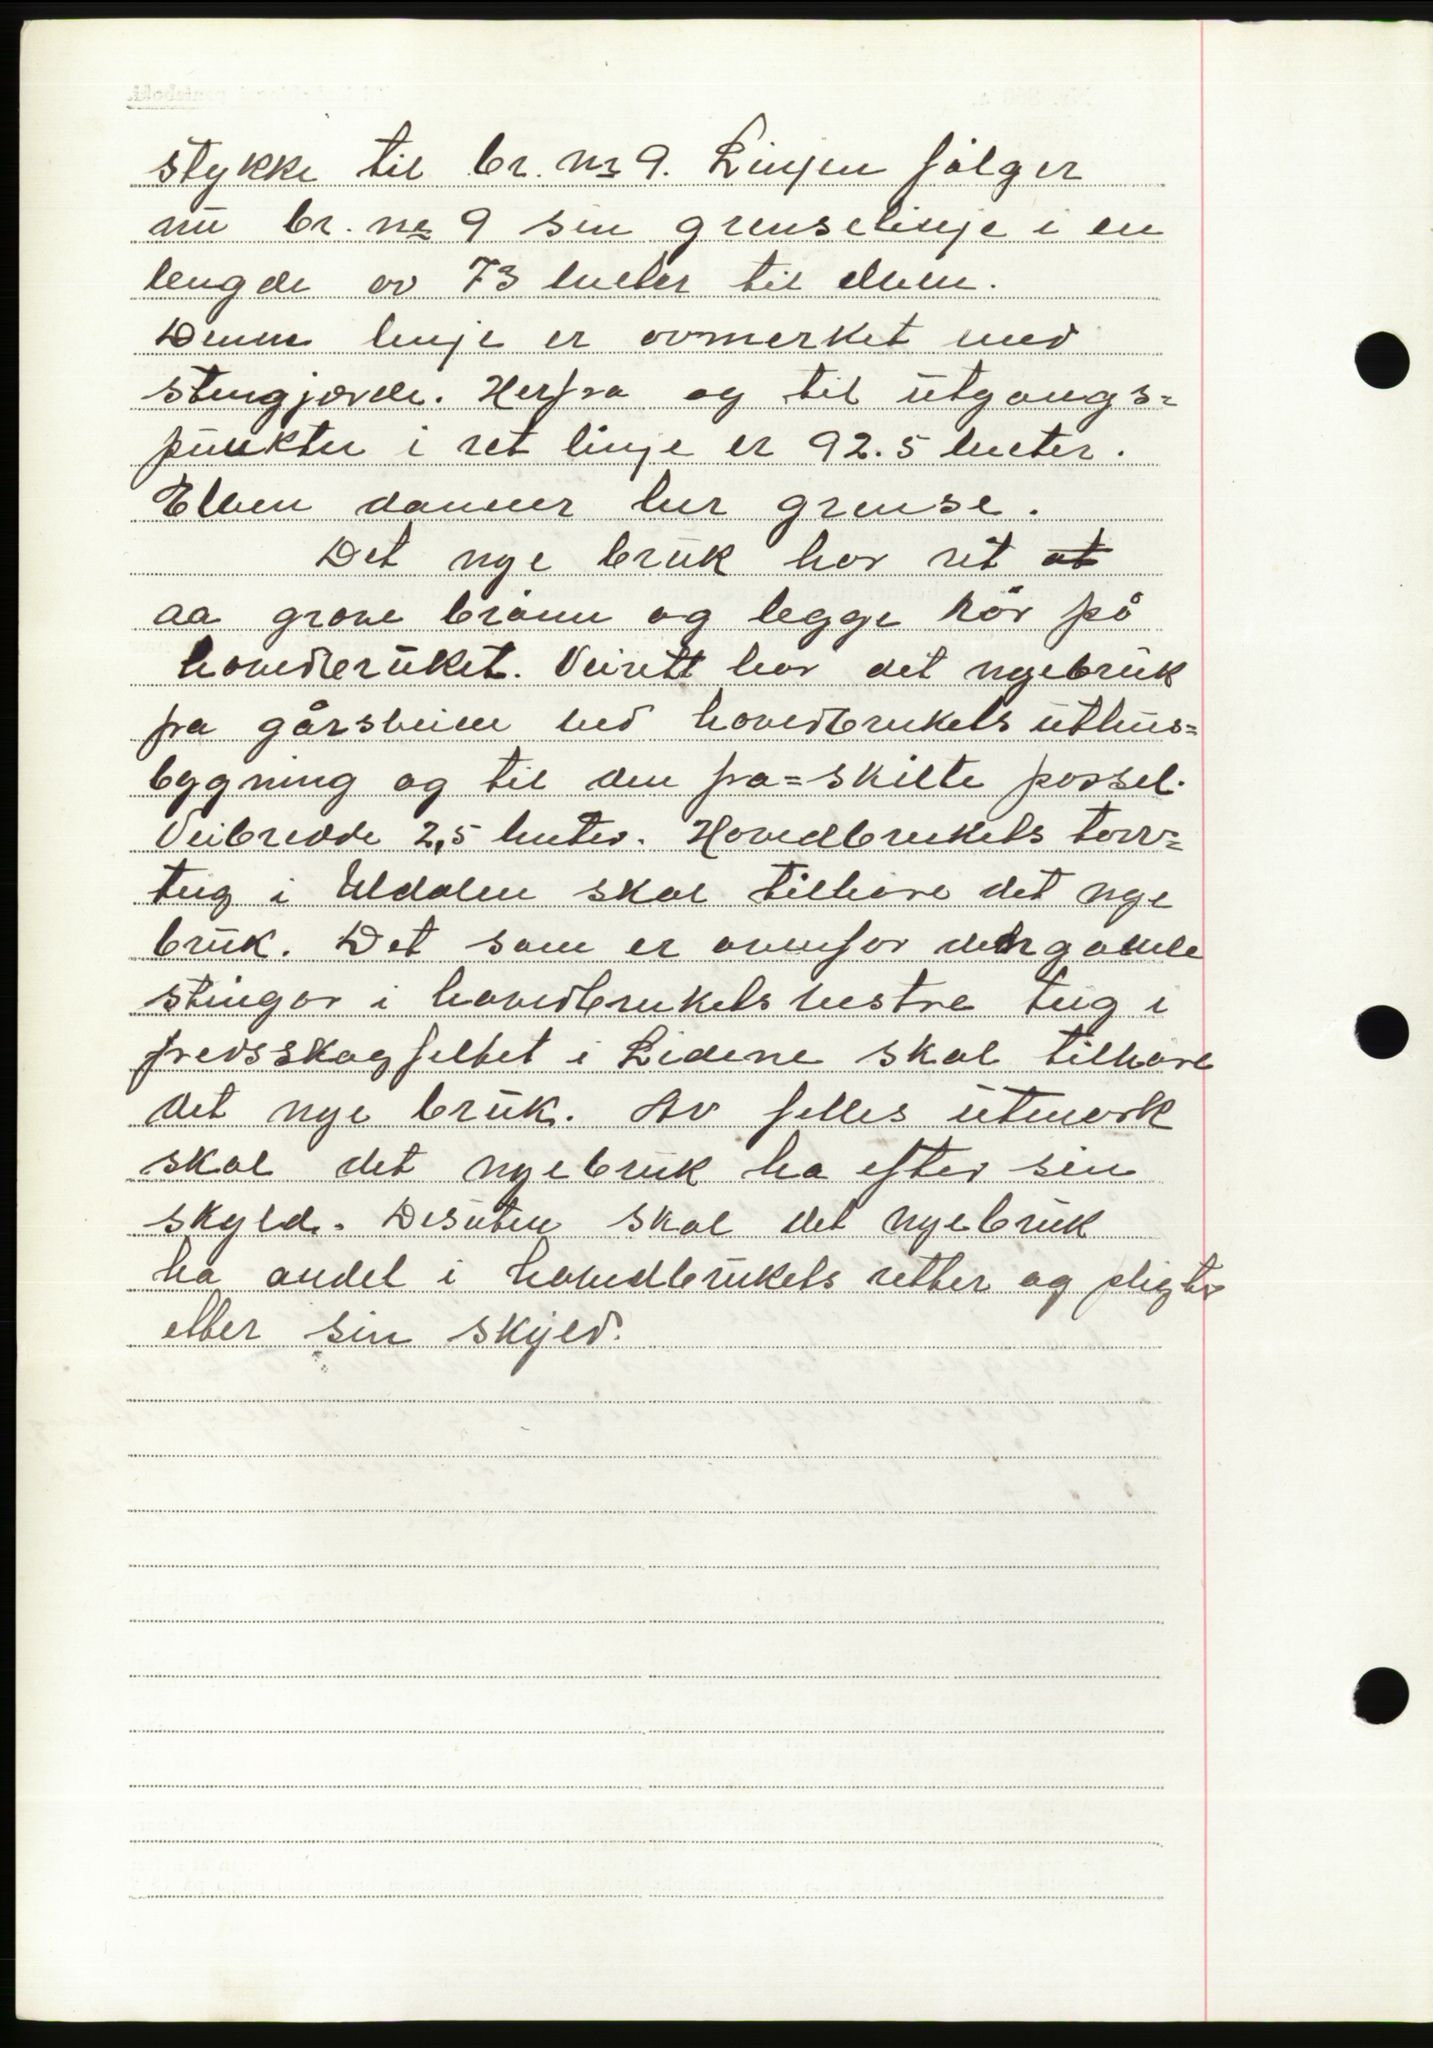 stykke til br. nr 9. Linjen følger
nu br. nr 9 sin grenselinje i en
lengde av 73 meter til elven.
Denne linje er avmerket med
stengjærde. Herfra og til utgangs=
punkten i ret linje er 92.5 meter.
Elven danner her grense.
Det nye bruk har ret at
aa grave brønn og legge rør på
hovedbruket. Veirett har det nyebruk
fra gårsveien ved hovedbrukets uthus=
bygning og til den fra=skilte parsel.
Veibredde 2,5 meter. Hovedbrukets torv=
teig i Uldalen skal tilhøre det nye
bruk. Det som er ovenfor den gamle
stingar i hovedbrukets vestre teig i
fredsskogfeltet i Lidene skal tilhøre
det nye bruk. Av felles utmark
skal det nyebruk ha efter sin
skyld. Desuten skal det nyebruk
ha andel i hovedbrukets retter og pligter
etter sin skyld.